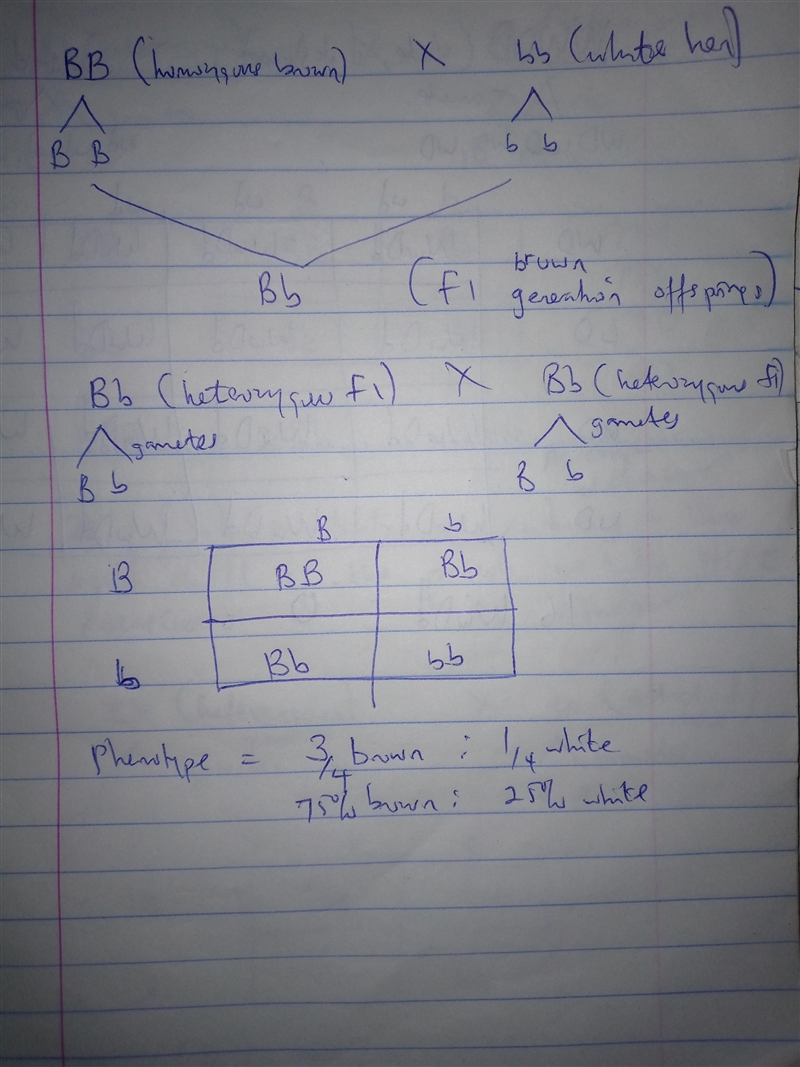 BB (homozygous brown) X bb (white hen)
B B b b
Bb (F1 brown generation offsprings)
Bb (heterozygous F1) X Bb (heterozygous f1)
gametes gametes
B b B b
B b
B BB Bb
b Bb bb
Phenotype = 3/4 brown : 1/4 white
75% brown : 25% white